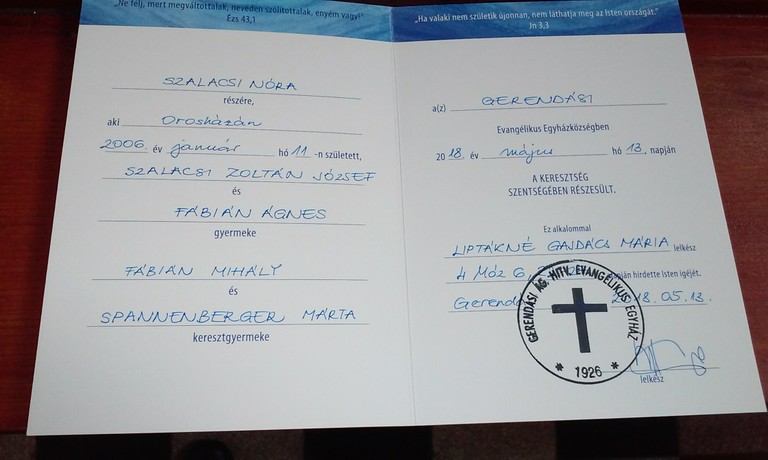 „Ne félj, mert megváltottalak, neveden szólítottalak, enyém vagy!"
Ézs 43,1
SZALACSI NÓRA
részére,
aki Orosházán
2006. év január hó 11 -n született,
SZALACSI ZOLTÁN JÓZSEF
és
FÁBIÁN ÁGNES
gyermeke
FÁBIÁN MIHÁLY
és
SPANNENBERGER MÁRTA
keresztgyermeke
„Ha valaki nem születik újonnan, nem láthatja meg az Isten országát."
Jn 3,3
a(z) GERENDÁSI
Evangélikus Egyházközségben
2018. év május hó 13. napján
A KERESZTSÉG
SZENTSÉGÉBEN RÉSZESÜLT.
Ez alkalommal
LIPTÁKNÉ GAJDÁCS MÁRIA lelkész
4 Móz 6, alapján hirdette Isten igéjét.
2018.05.13.
GERENDÁSI ÁG. HITV. EVANGÉLIKUS EGYHÁZ
* 1926 *
lelkész